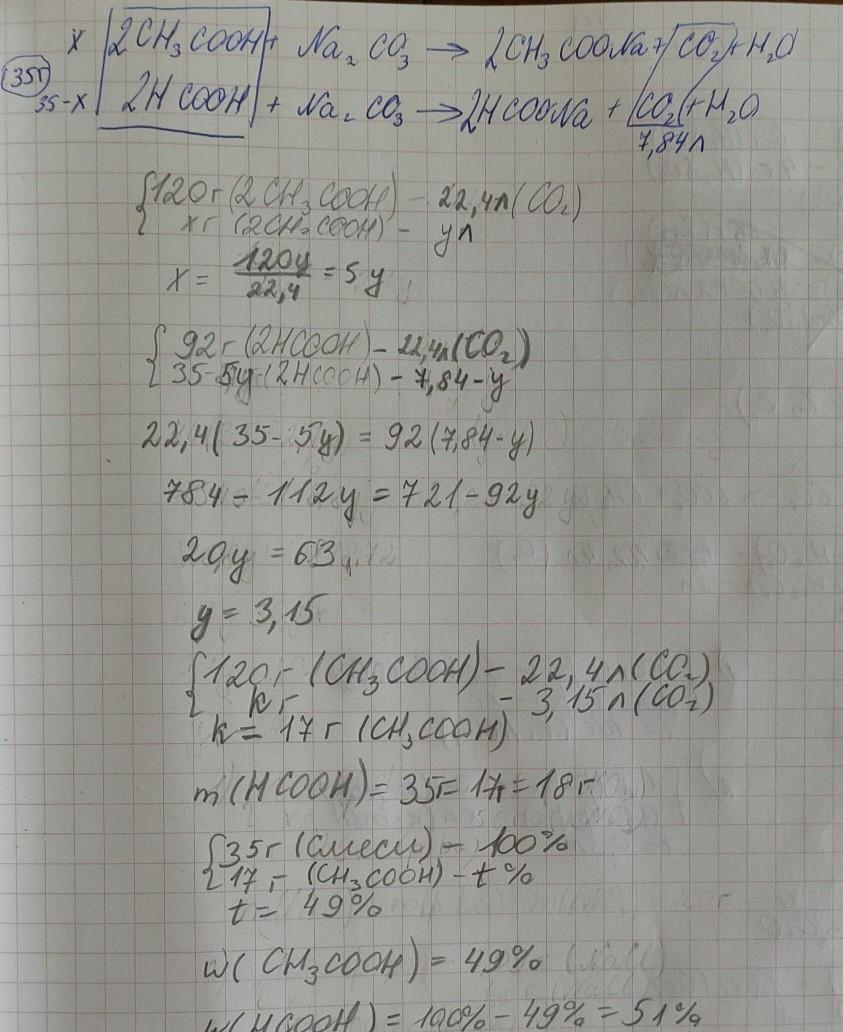 x 2CH₃COOH + Na₂CO₃ → 2CH₃COONa + CO₂ + H₂O
35г
35-x 2HCOOH + Na₂CO₃ → 2HCOONa + CO₂ + H₂O
7,84л
120г (2CH₃COOH) - 22,4л (CO₂)
xг (2CH₃COOH) - yл
x = 120y/22,4 = 5y
92г (2HCOOH) - 22,4л (CO₂)
35-5y (2HCOOH) - 7,84-y
22,4(35-5y) = 92(7,84-y)
784 - 112y = 721 - 92y
20y = 63
y = 3,15
120г (CH₃COOH) - 22,4л (CO₂)
kг - 3,15л (CO₂)
k = 17г (CH₃COOH)
m(HCOOH) = 35г - 17г = 18г
35г (смеси) - 100%
17г (CH₃COOH) - t%
t = 49%
w(CH₃COOH) = 49%
w(HCOOH) = 100% - 49% = 51%